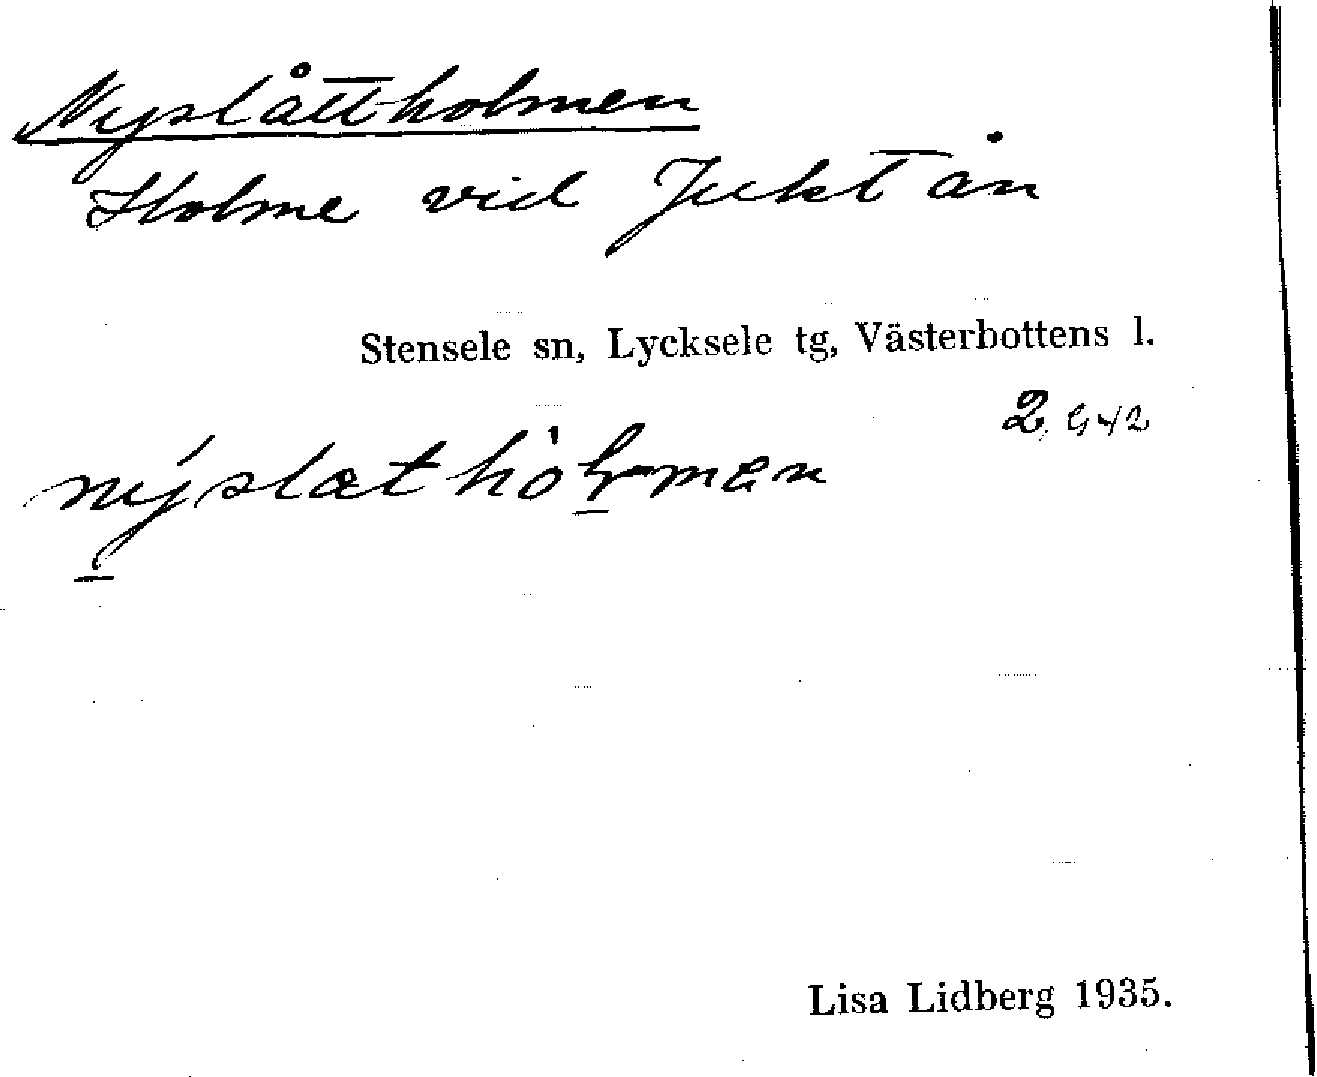 Nyslåttholmen
Holme vid Juktån
Stensele sn, Lycksele tg, Västerbottens l.
2
Lisa Lidberg 1935.